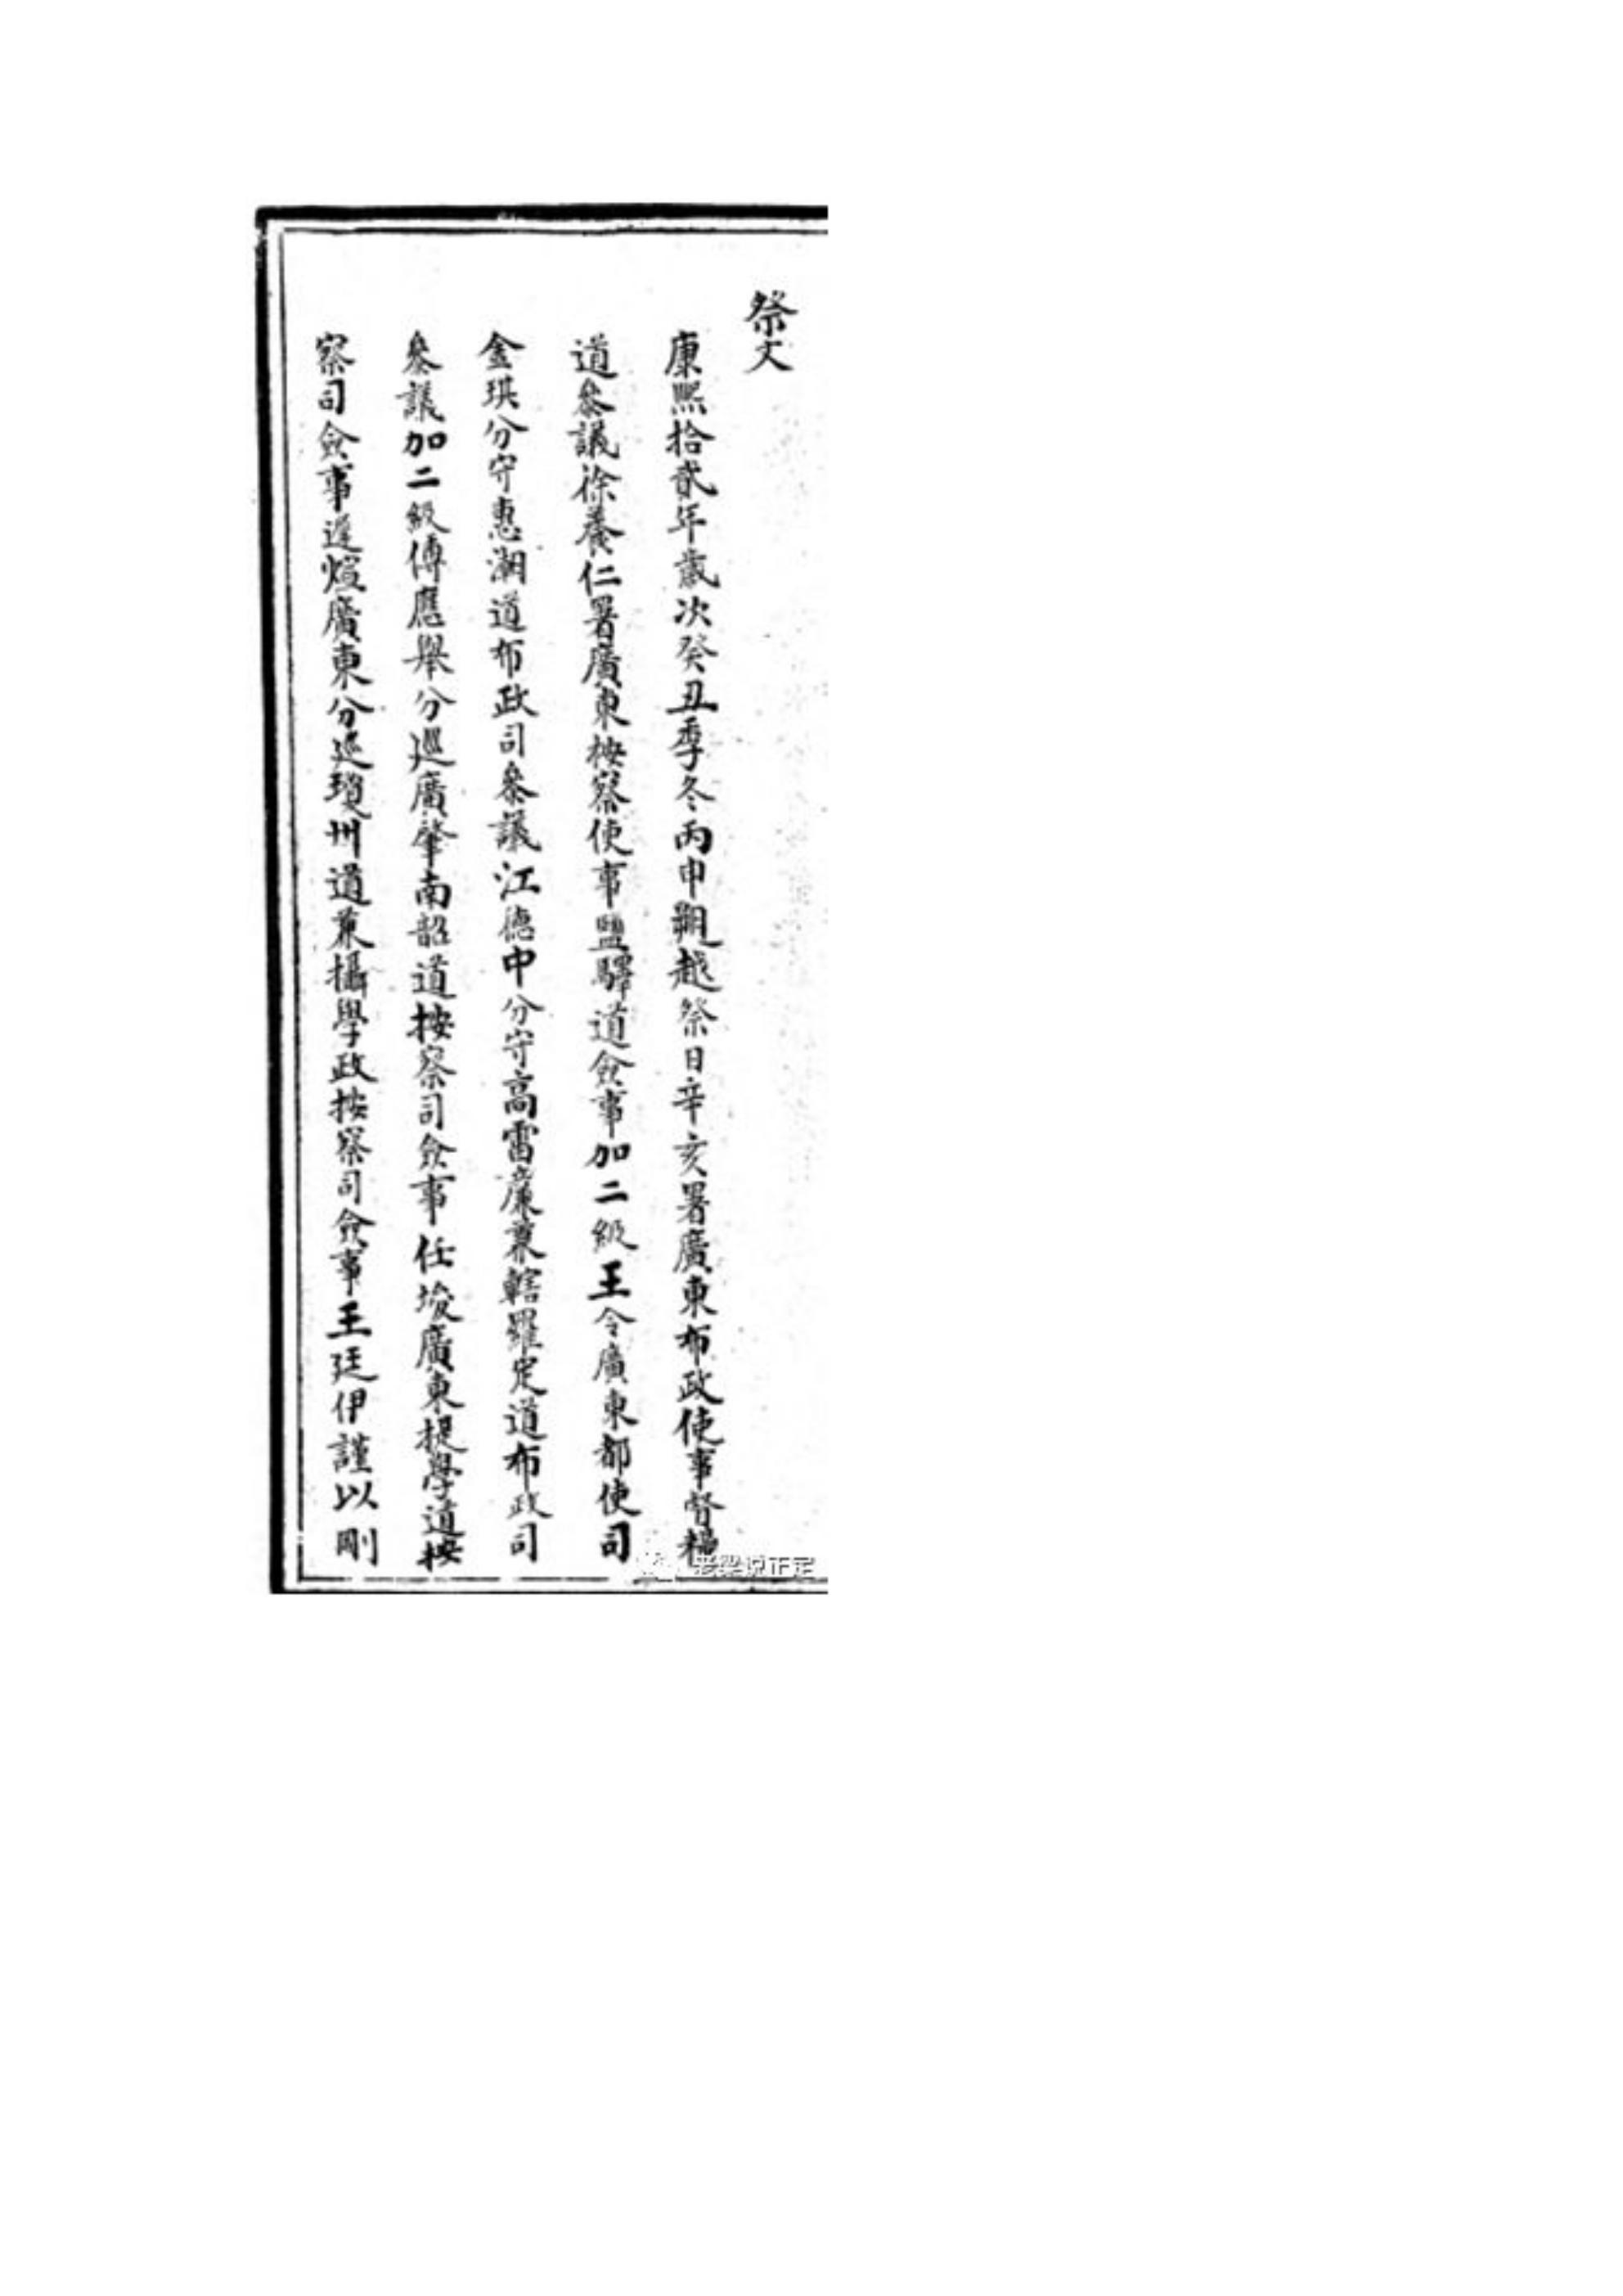 祭文
康熙拾貳年歲次癸丑季冬丙申朔越祭日辛亥署廣東布政使事督糧
道叅議徐養仁署廣東按察使事鹽驛道僉事加二級王令廣東都使司
金琪分守惠潮道布政司叅議江德中分守高雷廉兼轄羅定道布政司
叅議加二級傅應舉分巡廣肇南韶道按察司僉事任埈廣東提學道按
察司僉事遲煊廣東分巡瓊州道兼攝學政按察司僉事王廷伊謹以剛
老梁说正定